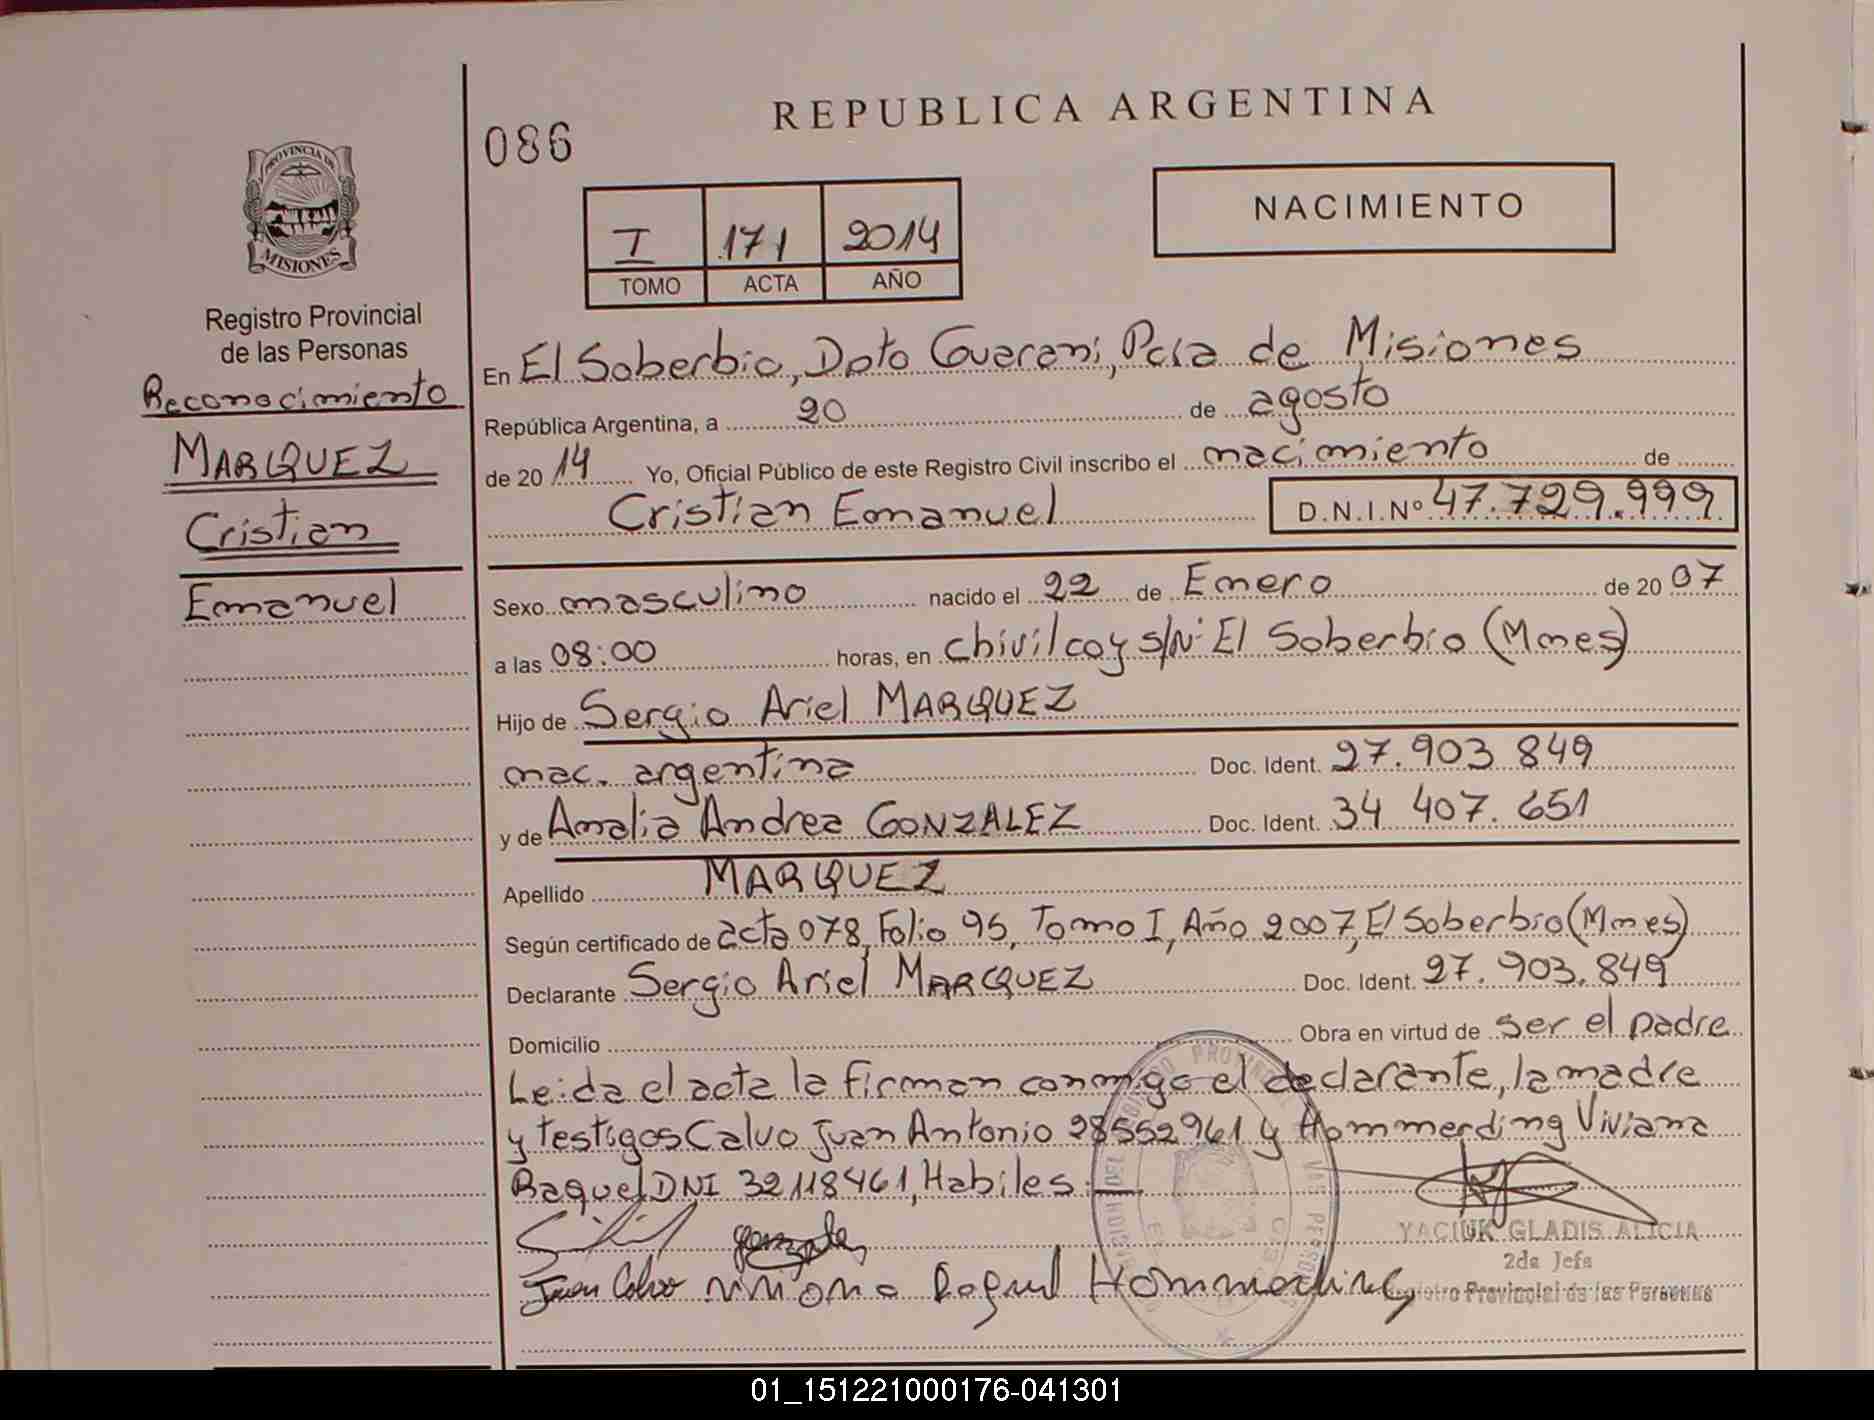 REPUBLICA ARGENTINA
086
NACIMIENTO
I 171 2014
TOMO ACTA AÑO
PROVINCIA DE
MISIONES
Registro Provincial
de las Personas
Reconocimiento
MARQUEZ
Cristian
Emanuel
En El Soberbio, Dpto Guarani, Pcia de Misiones
República Argentina, a 20 de agosto
de 2014 Yo, Oficial Público de este Registro Civil inscribo el nacimiento de
Cristian Emanuel D.N.I.Nº 47.729.999
Sexo masculino nacido el 22 de Enero de 2007
a las 08:00 horas, en Chivilcoy s/Nº El Soberbio (Mnes)
Hijo de Sergio Ariel MARQUEZ
nac. argentina Doc. Ident. 27.903 849
y de Amalia Andrea GONZALEZ Doc. Ident. 34 407.651
Apellido MARQUEZ
Según certificado de acta 078, Folio 95, Tomo I, Año 2007, El Soberbio (Mnes)
Declarante Sergio Ariel MARQUEZ Doc. Ident. 27.903.849
Domicilio Obra en virtud de ser el padre
Leida el acta la firman conmigo el declarante, la madre
y testigos Calvo Juan Antonio 28552961 y Hommerding Viviana
Raquel DNI 32118461, Habiles.
YACIUK GLADIS ALICIA
2da Jefa
Registro Provincial de las Personas
Juan Calvo Viviana Raquel Hommerding
01_151221000176-041301